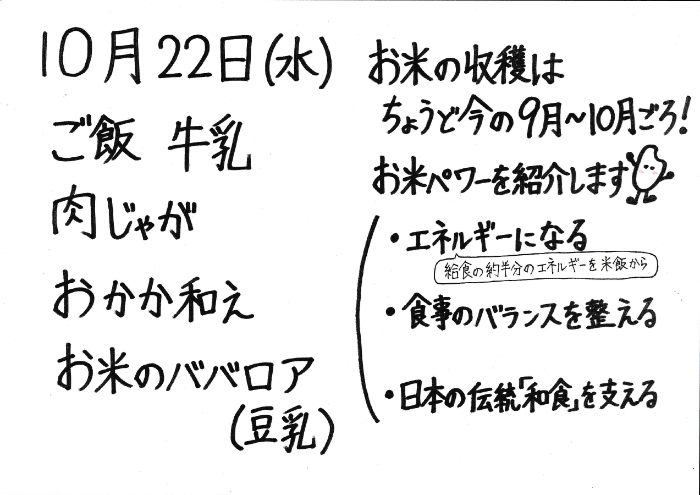 10月22日(水)
ご飯 牛乳
肉じゃが
おかか和え
お米のババロア
(豆乳)
お米の収穫は
ちょうど今の9月～10月ごろ!
お米パワーを紹介します
・エネルギーになる
給食の約半分のエネルギーを米飯から
・食事のバランスを整える
・日本の伝統「和食」を支える